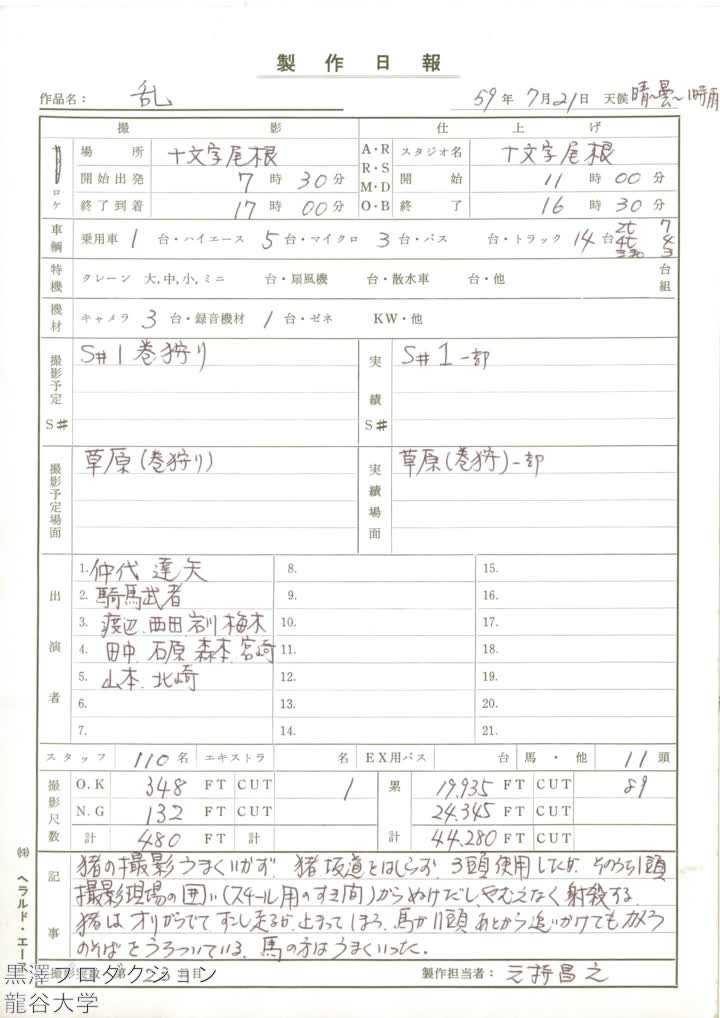 製作日報
作品名: 乱 59年7月21日 天候 晴~曇~1時雨
撮影 仕上げ
ロケ 場所 十文字尾根 A・R R・S M・D O・B スタジオ名 十文字尾根
開始出発 7時30分 開始 11時00分
終了到着 17時00分 終了 16時30分
車輌 乗用車 1台・ハイエース 5台・マイクロ 3台・バス 台・トラック 14台 2t 7 4t 4 3
特機 クレーン 大,中,小,ミニ 台・扇風機 台・散水車 台・他 台組
機材 キャメラ 3台・録音機材 1台・ゼネ KW・他
撮影予定 S# S#1 巻狩り 実績 S# S#1一部
撮影予定場面 草原(巻狩り) 実績場面 草原(巻狩)一部
出演者 1. 仲代達矢 8. 15.
2. 騎馬武者 9. 16.
3. 渡辺.西田.岩川 梅木 10. 17.
4. 田中.石原 森本.宮崎 11. 18.
5. 山本.北崎 12. 19.
6. 13. 20.
7. 14. 21.
スタッフ 110名 エキストラ 名 EX用バス 台 馬・他 11頭
撮影尺数 O.K 348 FT CUT 1 累計 19,935 FT CUT 89
N.G 132 FT CUT 24,345 FT CUT
計 480 FT 計 44,280 FT CUT
記事 猪の撮影うまくいかず. 猪坂道をはしらず. 3頭使用したが. そのうち1頭
撮影現場の囲い(スチール用のすき間)からぬけだし, やむえなく射殺する.
猪はオリからでて すこし走るが, 止まってしまう. 馬が11頭あとから追いかけてもカメラ
のそばをうろついている. 馬の方はうまくいった.
撮影実数 第 23日目 製作担当者: 元持昌之
㈱ヘラルド・エース
黒澤プロダクション
龍谷大学